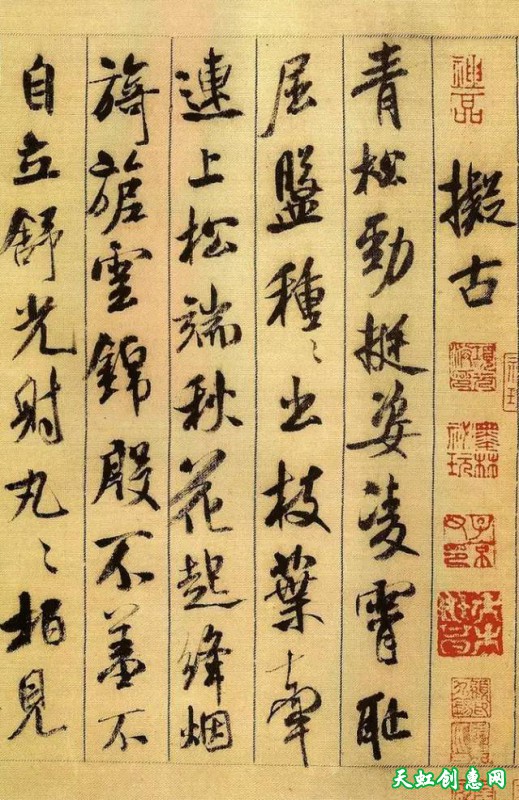 神品
擬古
墨林秘玩
青松勁挺姿凌霄恥
屈盤種〻出枝葉牽
連上松端秋花起絳烟
旖旎雲錦殷不羞不
自立舒光射丸〻柏見
天虹创惠网